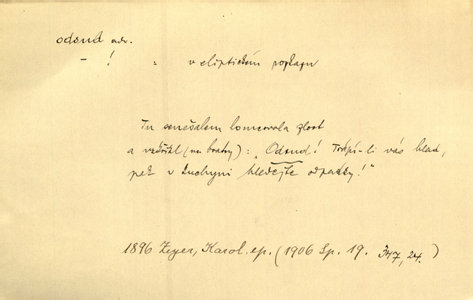 odsud adv.
– ! „ v eliptickém rozkazu
Tu senešalem lomcovala zlost
a vzkřikl (na bratry): „Odsud! Trápí-li vás hlad,
pak v kuchyni hledejte odpadky!"
1896 Zeyer, Karol. ep. (1906 Sp. 19. 347,24.)